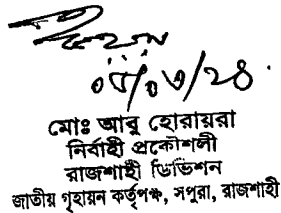 ০৫/০৩/২৪
মোঃ আবু হোরায়রা
নির্বাহী প্রকৌশলী
রাজশাহী ডিভিশন
জাতীয় গৃহায়ন কর্তৃপক্ষ, সপুরা, রাজশাহী